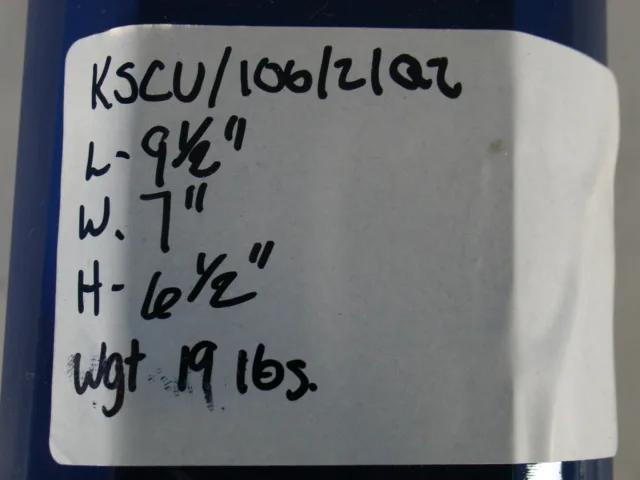 KSCU/106/2/Q2
L- 9 1/2"
W. 7"
H- 6 1/2"
Wgt 19 lbs.